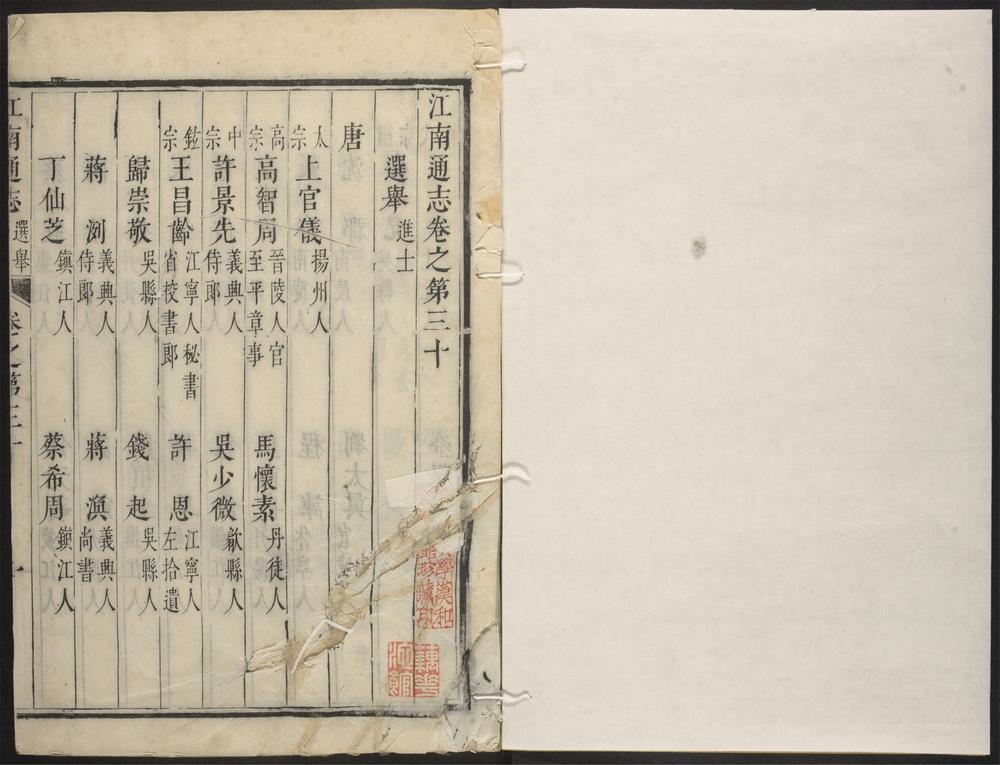 江南通志卷之第三十
選舉 進士
唐
太宗 上官儀 揚州人
高宗 高智周 晉陵人 官至平章事 馬懷素 丹徒人
中宗 許景先 義興人侍郎 吳少微 歙縣人
玄宗 王昌齡 江寧人秘書省校書郎 許恩 江寧人左拾遺
歸崇敬 吳縣人 錢起 吳縣人
蔣洌 義興人侍郎 蔣渙 義興人尚書
丁仙芝 鎮江人 蔡希周 鎮江人
江南通志 選舉 卷之第三十 一
珍藏印